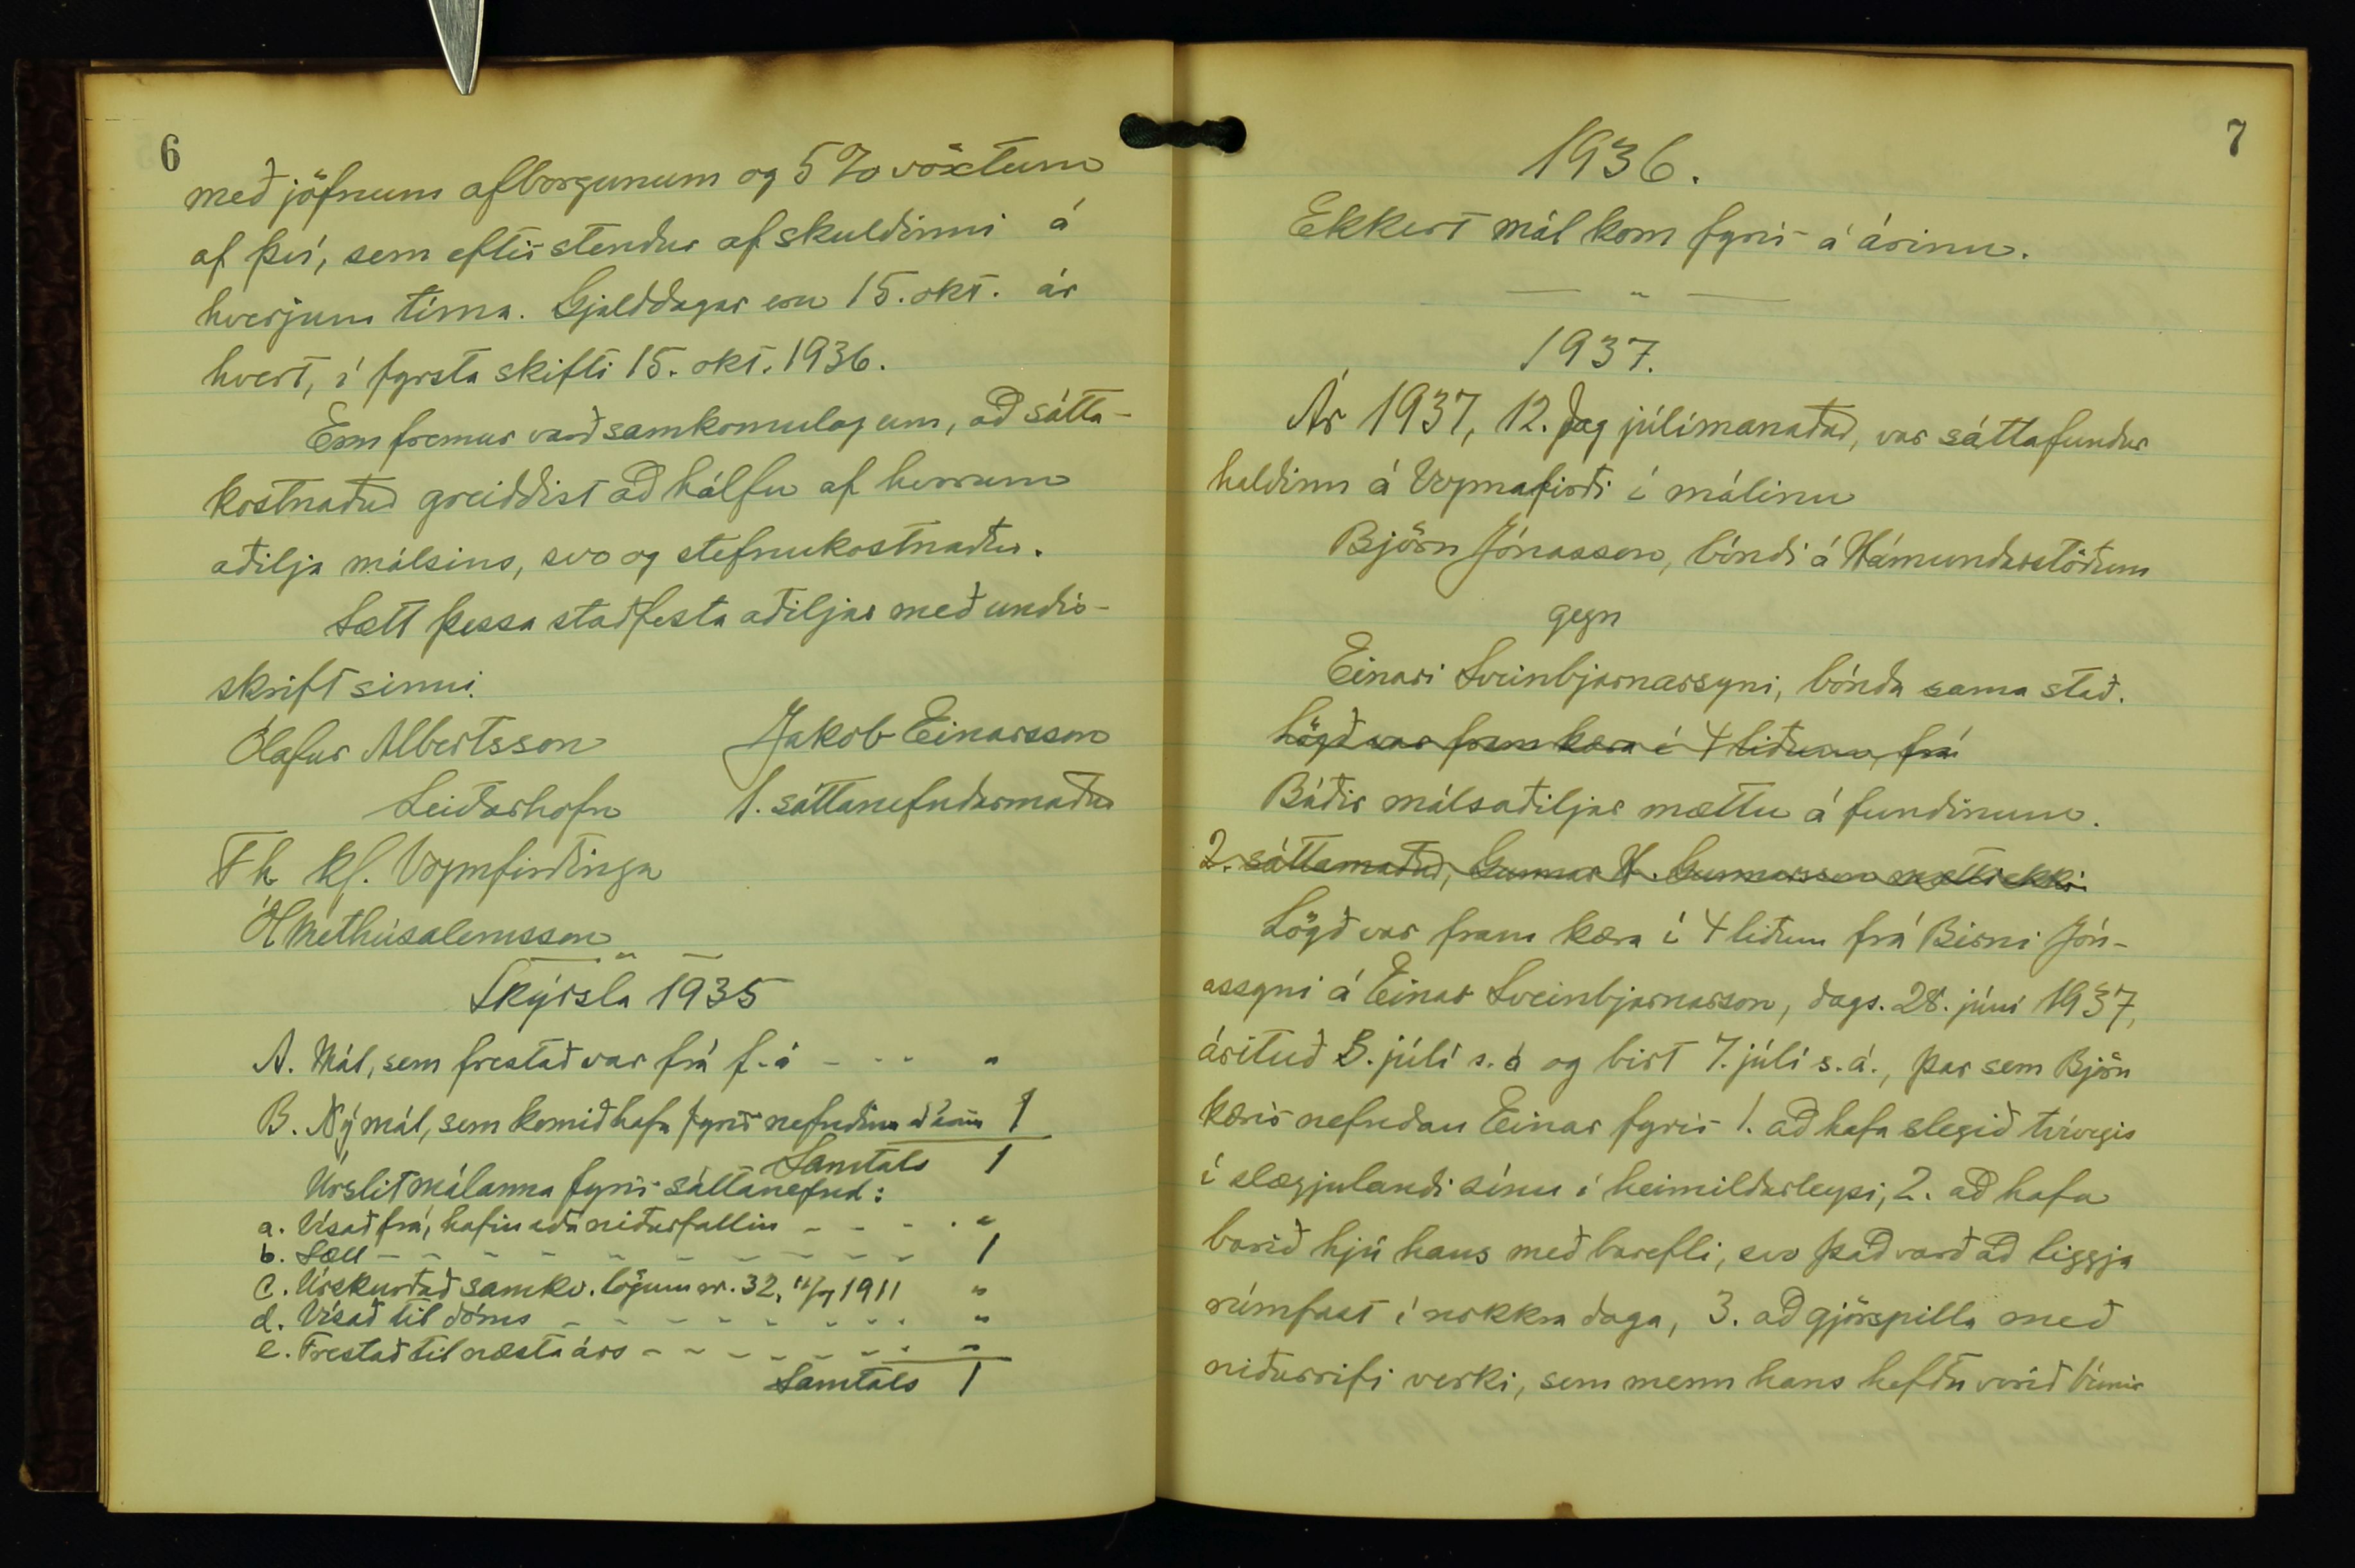 6
með jöfnum afborgunum og 5% vöxtum
af því, sem eftir stendur af skuldinni á
hverjum tíma. Gjalddagar eru 15. okt. ár
hvert, í fyrsta skifti 15. okt. 1936.
Enn fremur varð samkomulag um, að sátta-
kostnaður greiddist að hálfu af hvorum
aðilja málsins, svo og stefnukostnaður.
Sætt þessa staðfesta aðiljar með undir-
skrift sinni.
Ólafur Albertsson Jakob Einarsson
Leiðarhöfn 1. sáttanefndarmaður
F h Kf. Vopnfirðinga
Ól Methúsalemsson
— " —
Skýrsla 1935
A. Mál, sem frestað var frá f. á - - - "
B. Ný mál, sem komið hafa fyrir nefndina á árinu 1
Samtals 1
Úrslit málanna fyrir sáttanefnd:
a. Vísað frá, hafin eða niðurfallin - - - - "
b. Sætt - - - - - - - - - - 1
c. Úrskurðað samkv. lögum nr. 32, 11/7 1911 "
d. Vísað til dóms - - - - - - - - - "
e. Frestað til næsta árs - - - - - - - "
Samtals 1
7
1936.
Ekkert mál kom fyrir á árinu.
— " —
1937.
Ár 1937, 12. dag júlímánaðar, var sáttafundur
haldinn á Vopnafirði í málinu
Björn Jónasson, bóndi á Hámundarstöðum
gegn
Einari Sveinbjarnarsyni, bónda sama stað.
Lögð var fram kæra í 4 liðum, frá
Báðir málsaðiljar mættu á fundinum.
2. sáttamaður, Gunnar H. Gunnarsson mætti ekki
Lögð var fram kæra í 4 liðum frá Birni Jón-
assyni á Einar Sveinbjarnarson, dags. 28. júní 1937,
árituð 3. júlí s. á og birt 7. júlí s. á., þar sem Björn
kærir nefndan Einar fyrir 1. að hafa slegið tvívegis
í slægjulandi sínu í heimildarleysi, 2. að hafa
barið hjú hans með barefli, svo það varð að liggja
rúmfast í nokkra daga, 3. að gjörspilla með
niðurrifi verki, sem menn hans hefðu verið búnir